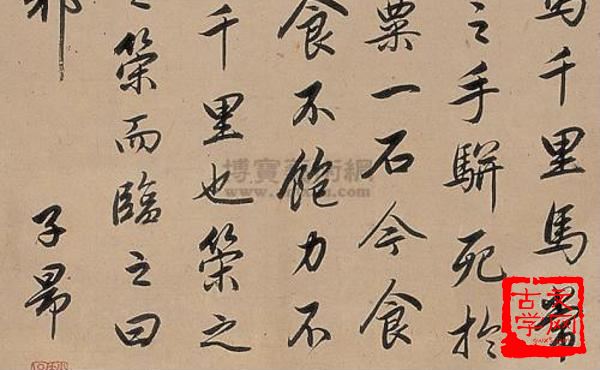 馬千里馬常
之手駢死於
粟一石今食
食不飽力不
千里也策之
之策而臨之曰
邪
子昂
博寶藝術網